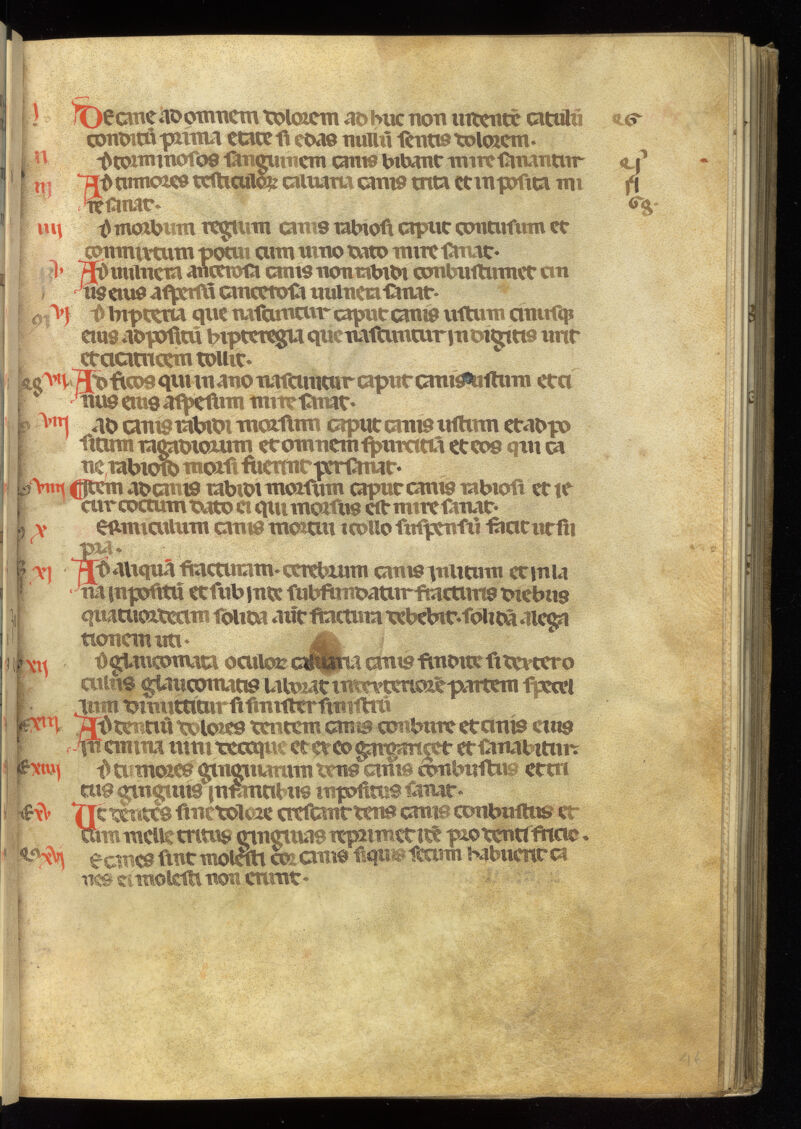 I De cane ad omnem dolorem ad huc non uidentē catulū 26
conditū prima etate si edas nullū sentis dolorem.
II d torminosos sanguinem canis bibant mire sanantur
III Ad tumores testiculoꝝ caluaria canis trita et inposita mi
re sanat. 68.
IIII d morbum regium canis rabiosi caput contusum et
conmixtum potui cum uino dato mire sanat.
V Ad uulnera cancerosa canis non rabidi conbustum et cin
us eius aspersū cancerosa uulnera sanat.
VI d hipteria que nascuntur caput canis ustum cinusqꝫ
eius adpositū hipteregia que nascuntur in digitis urit
et cicatricem tollit.
VII Ad ficos qui in ano nascuntur caput canis ustum et ci
nus eius aspesum mire sanat.
VIII ad canis rabidi morsum caput canis ustum et adpo
situm ragadiorum et omnem spurcitiā et eos qui ca
ne rabioso morsi fuerint persanat.
VIIII Item ad canis rabidi morsum caput canis rabiosi et ie
cur coctum dato ei qui morsus est mire sanat.
X canis mortui icollo suspensū facit ut su
pra.
XI Ad aliquā fracturam. cerebrum canis inlitum et in la
na inpositū et sub inde subfundatur fracturis diebus
quatuordecim solida aūt fractura debebit. solidā alega
tionem uti.
XII d glaucomata oculoꝝ caluaria canis findite si dexter o
culus glaucomatis laborat interteriorē partem specel
lum dimittitur si sinister sinistrū
XIII Ad dentiū dolores dentem canis conbure et cinis eius
in emina uini decoque et ex eo gargarizet et sanabitur.
XIIII d tumores ginguiarum dens canis cōnbustus et tri
tus gingiuis infantibus inpositus sanat.
XV Ut dentes sine dolore crescant dens canis conbustus et
cum melle tritus gingiuas reprimet itē pro denti fricio.
XVI e canes sint molesti cor canis siquis secum habuerit ca
nes ei molesti non erunt.